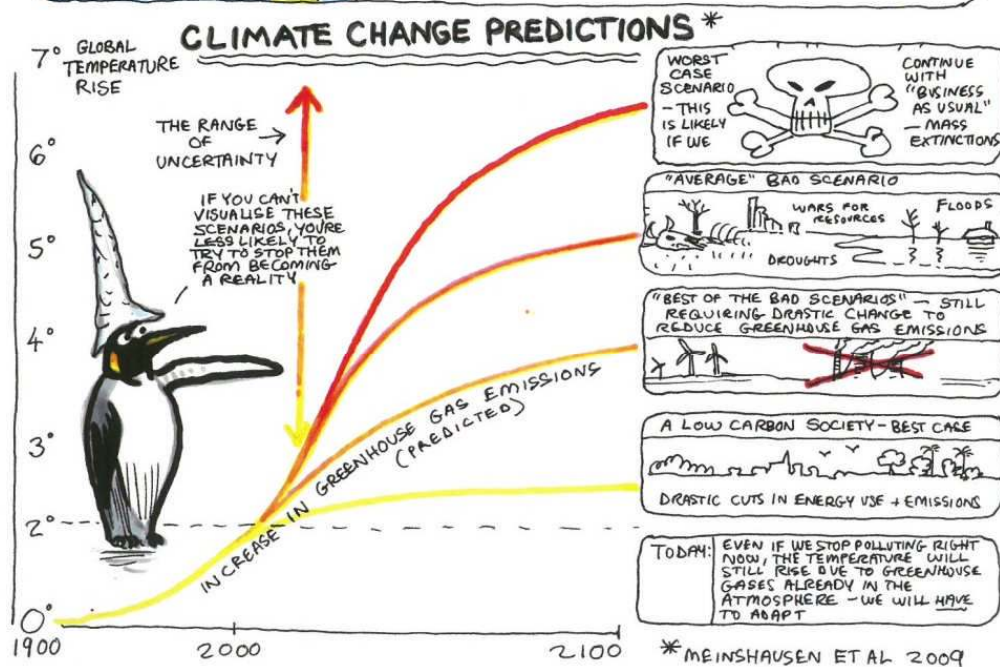 CLIMATE CHANGE PREDICTIONS*
7°
GLOBAL
TEMPERATURE
RISE
6°
5°
4°
3°
2°
0°
THE RANGE
OF
UNCERTAINTY
IF YOU CAN'T
VISUALISE THESE
SCENARIOS, YOU'RE
LESS LIKELY TO
TRY TO STOP THEM
FROM BECOMING
A REALITY
INCREASE IN GREENHOUSE GAS EMISSIONS
(PREDICTED)
1900
2000
2100
WORST
CASE
SCENARIO
- THIS
IS LIKELY
IF WE
CONTINUE
WITH
"BUSINESS
AS USUAL"
- MASS
EXTINCTIONS
"AVERAGE" BAD SCENARIO
WARS FOR
RESOURCES
FLOODS
DROUGHTS
"BEST OF THE BAD SCENARIOS" - STILL
REQUIRING DRASTIC CHANGE TO
REDUCE GREENHOUSE GAS EMISSIONS
A LOW CARBON SOCIETY - BEST CASE
DRASTIC CUTS IN ENERGY USE + EMISSIONS
TODAY:
EVEN IF WE STOP POLLUTING RIGHT
NOW, THE TEMPERATURE WILL
STILL RISE DUE TO GREENHOUSE
GASES ALREADY IN THE
ATMOSPHERE - WE WILL HAVE
TO ADAPT
*MEINSHAUSEN ET AL 2009